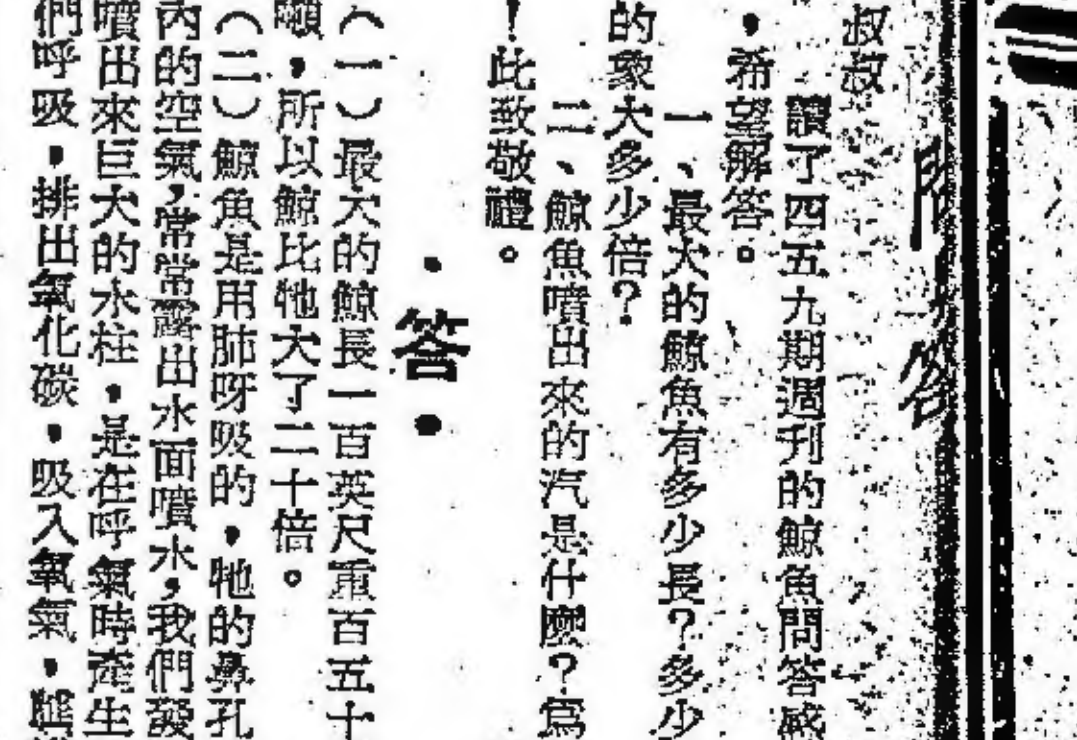 問答
叔叔
讀了四五九期週刊的鯨魚問答感
，希望解答。
一、最大的鯨魚有多少長？多少
的象大多少倍？
二、鯨魚噴出來的汽是什麼？爲
！此致敬禮。
·答·
（一）最大的鯨長一百英尺重百五十
噸，所以鯨比牠大了二十倍。
（二）鯨魚是用肺呼吸的，牠的鼻孔
內的空氣，常常露出水面噴水，我們發
噴出來巨大的水柱，是在呼氣時產生
們呼吸，排出氧化碳，吸入氧氣，雖